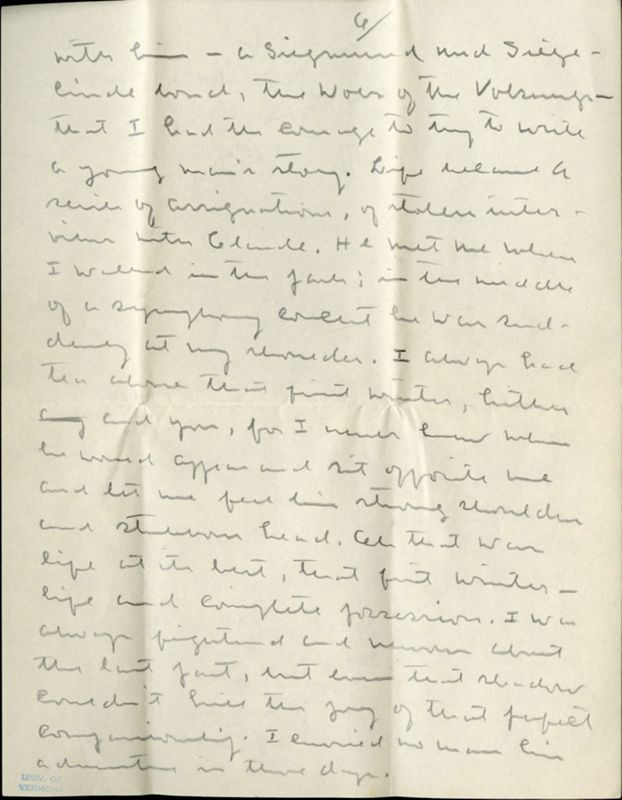 6/
with him — a Siegmund and Siege-
linde bond, the Woes of the Volsungs—
that I had the courage to try to write
a young man's story. Life became a
series of assignations, of stolen inter-
views with Claude. He met me when
I walked in the park; in the middle
of a symphony concert he was sud-
denly at my shoulder. I always had
tea alone that first winter,
and you, for I never knew when
he would appear and sit opposite me
and let me feel his strong shoulders
and stubborn head. All that was
life at its best, that first winter—
life and complete possession. I was
always frightened and nervous about
the last part, but even that shadow
couldn't kill the joy of that perfect
companionship. I envied no man his
adventure in those days.
UNIV. OF
VERMONT